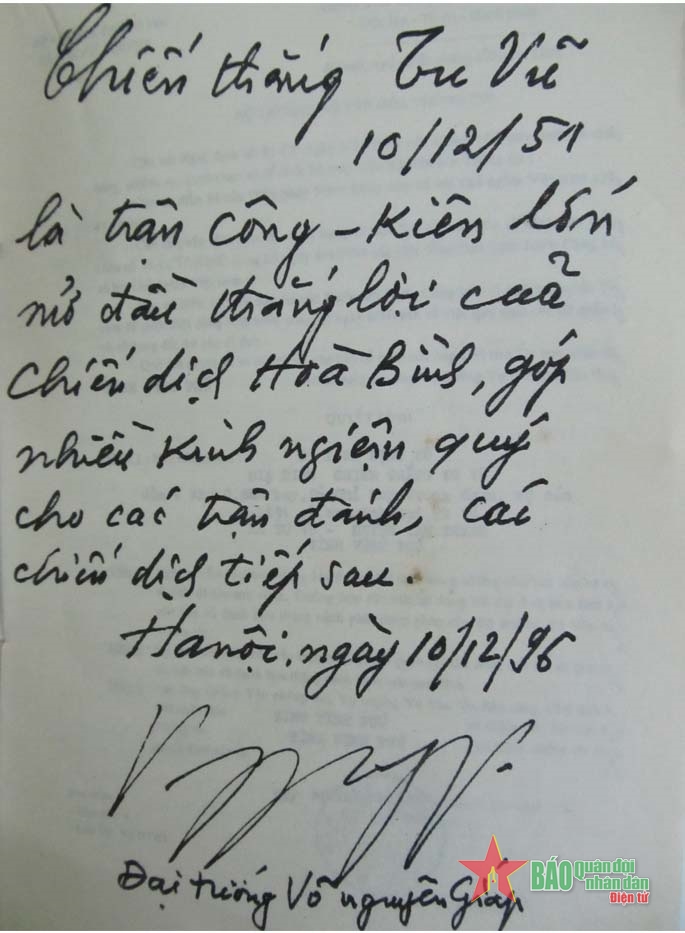 Chiến thắng Tu Vũ
10/12/51
là trận công-kiên lớn
mở đầu thắng lợi của
chiến dịch Hoà Bình, góp
nhiều kinh ngiệm quý
cho các trận đánh, các
chiến dịch tiếp sau.
Hà nội, ngày 10/12/96
Đại tướng Võ nguyên Giáp
BÁO quân đội
nhân dân
Điện tử